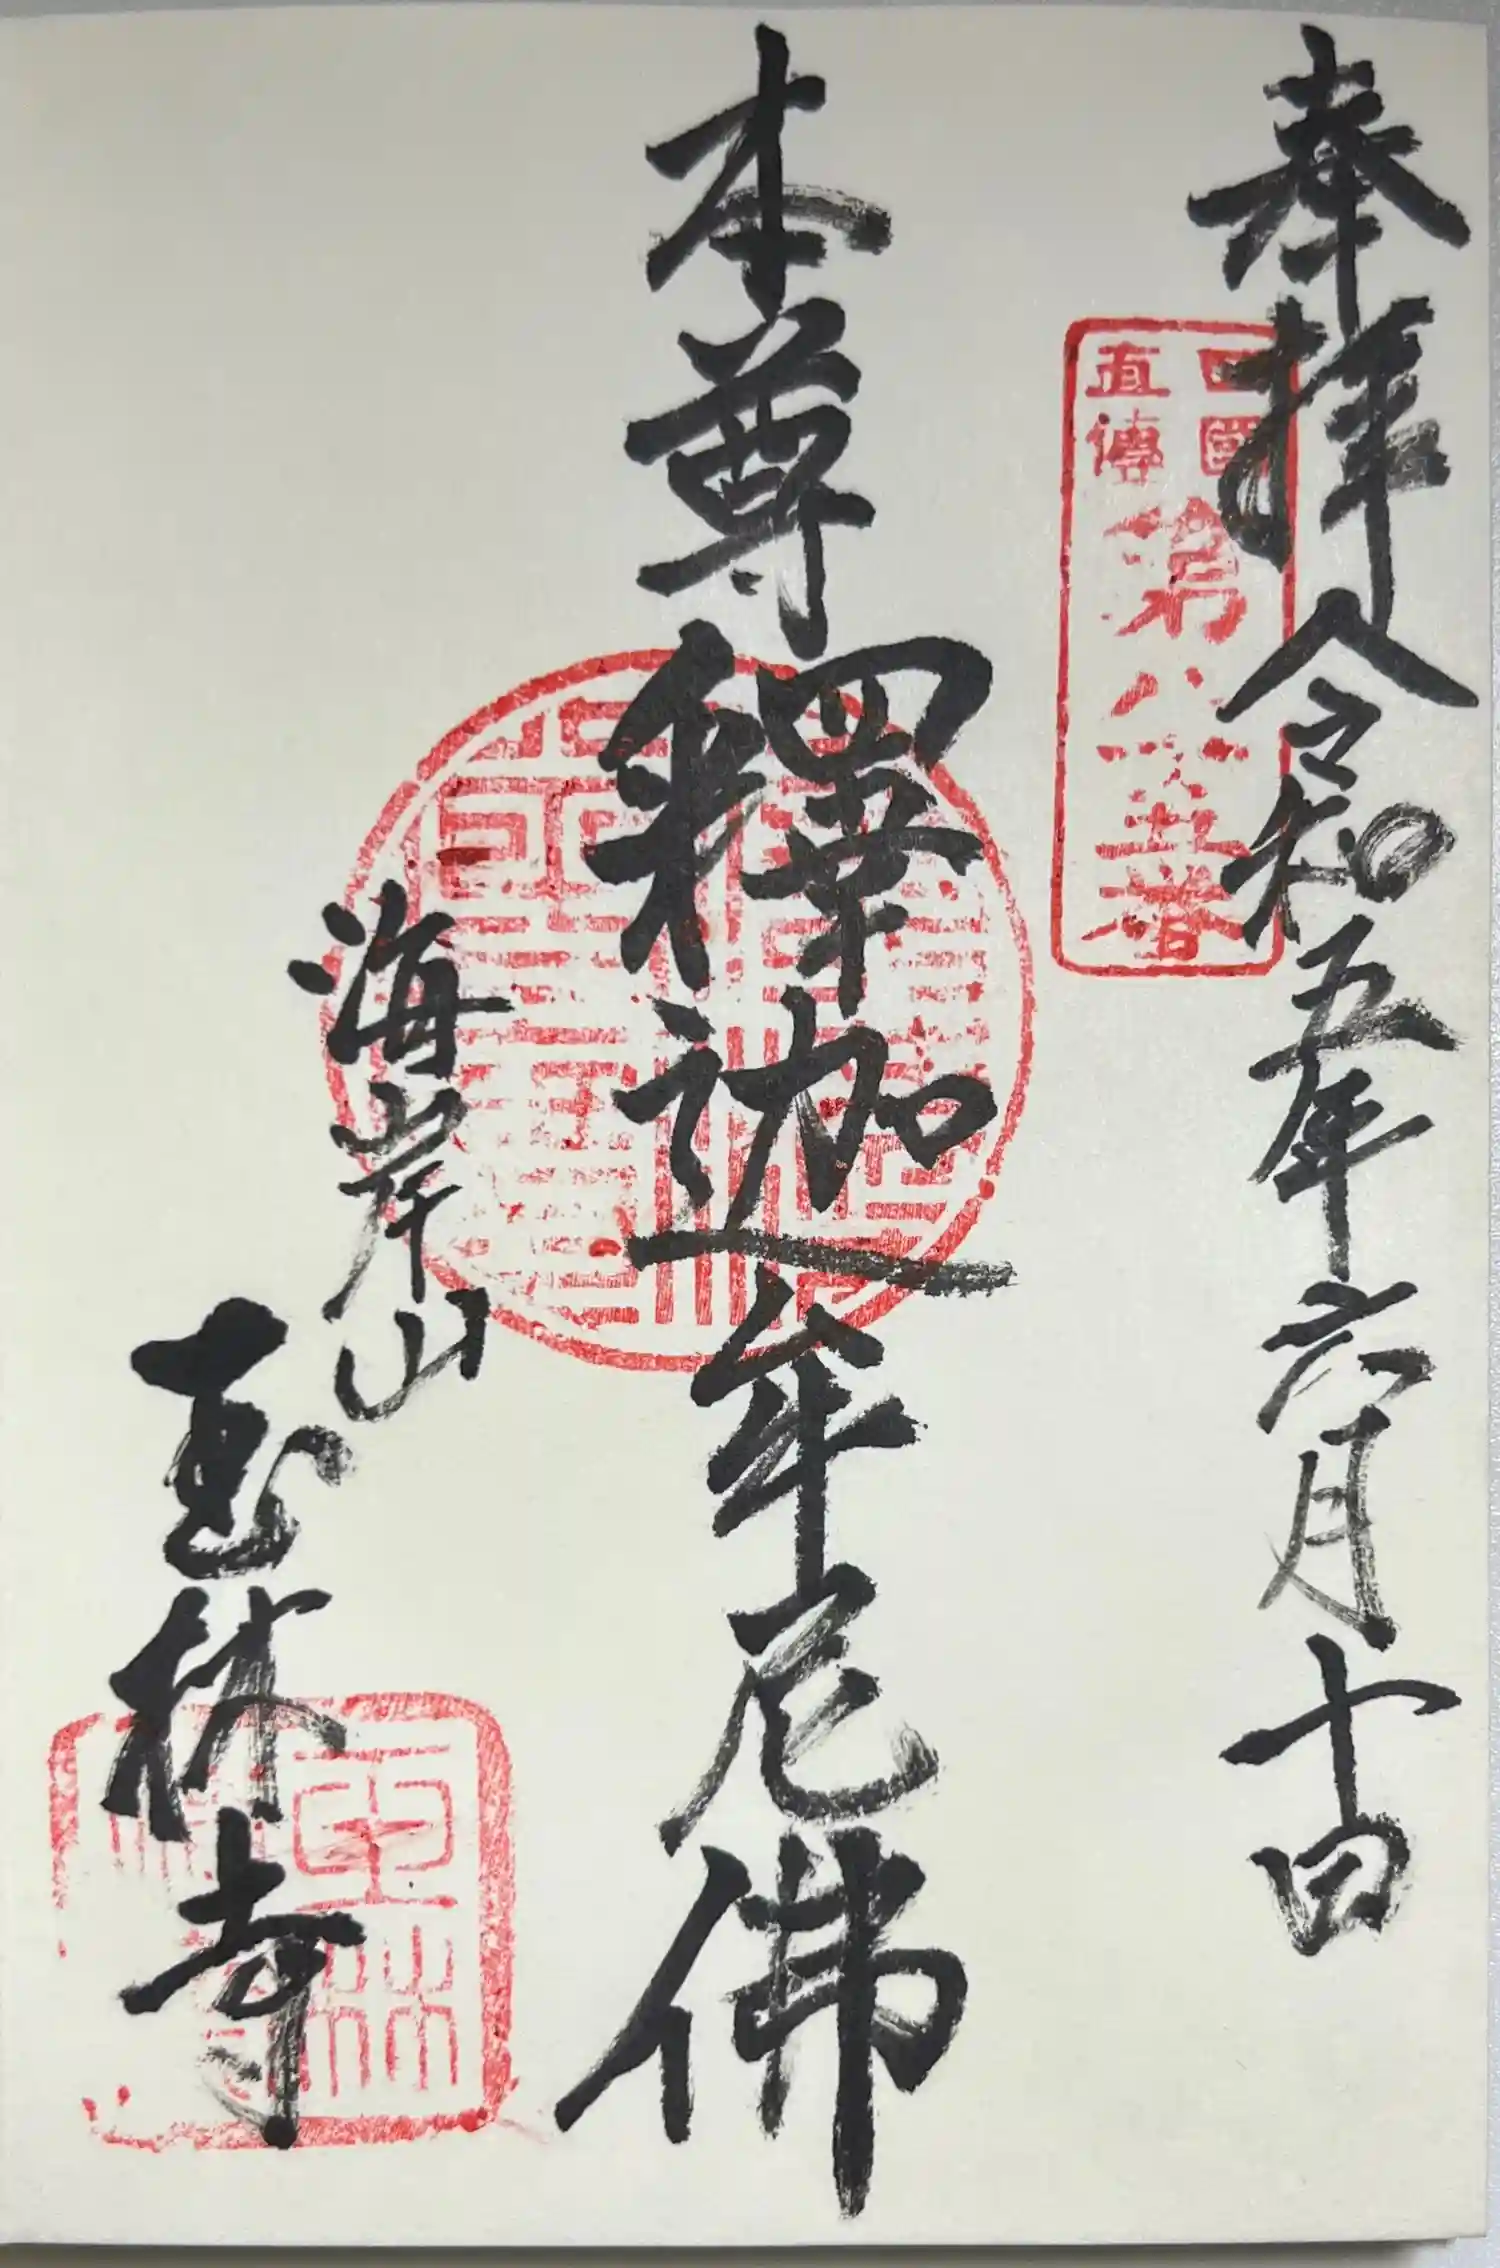 奉拝 令和五年六月十日
四國
直傳
第八十五番
本尊 釋迦牟尼佛
海岸山
玉林寺
玉林